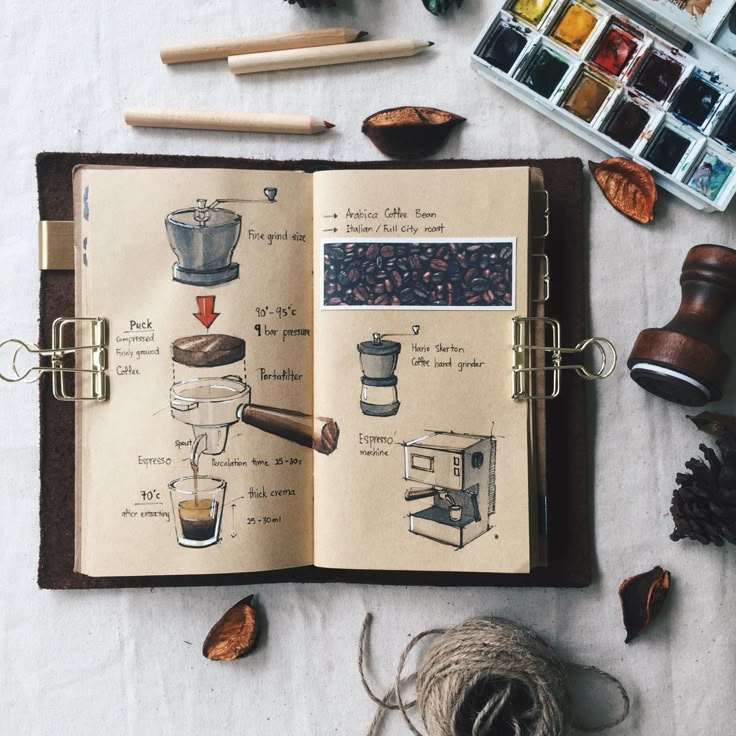 Fine grind size
90°-95°c
9 bar pressure
Puck
compressed
Finely ground
Coffee
Portafilter
spout
Espresso
Percolation time 25-30s
70°c
after extracting
thick crema
25-30ml
→ Arabica Coffee Bean
→ Italian / Full City roast
Hario Skerton
Coffee hand grinder
Espresso
machine